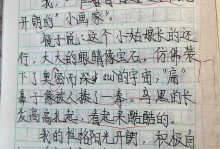 我，一
开朗的"小画家"。
镜子说：这个小姑娘长的还
行，大大的眼睛像宝石，仿佛装
下了奥密而深的宇宙，"扁"
鼻子像被人揍了一拳，乌黑的长
发高高扎起，看起来酷酷的。
我的性格阳光开朗，积极自